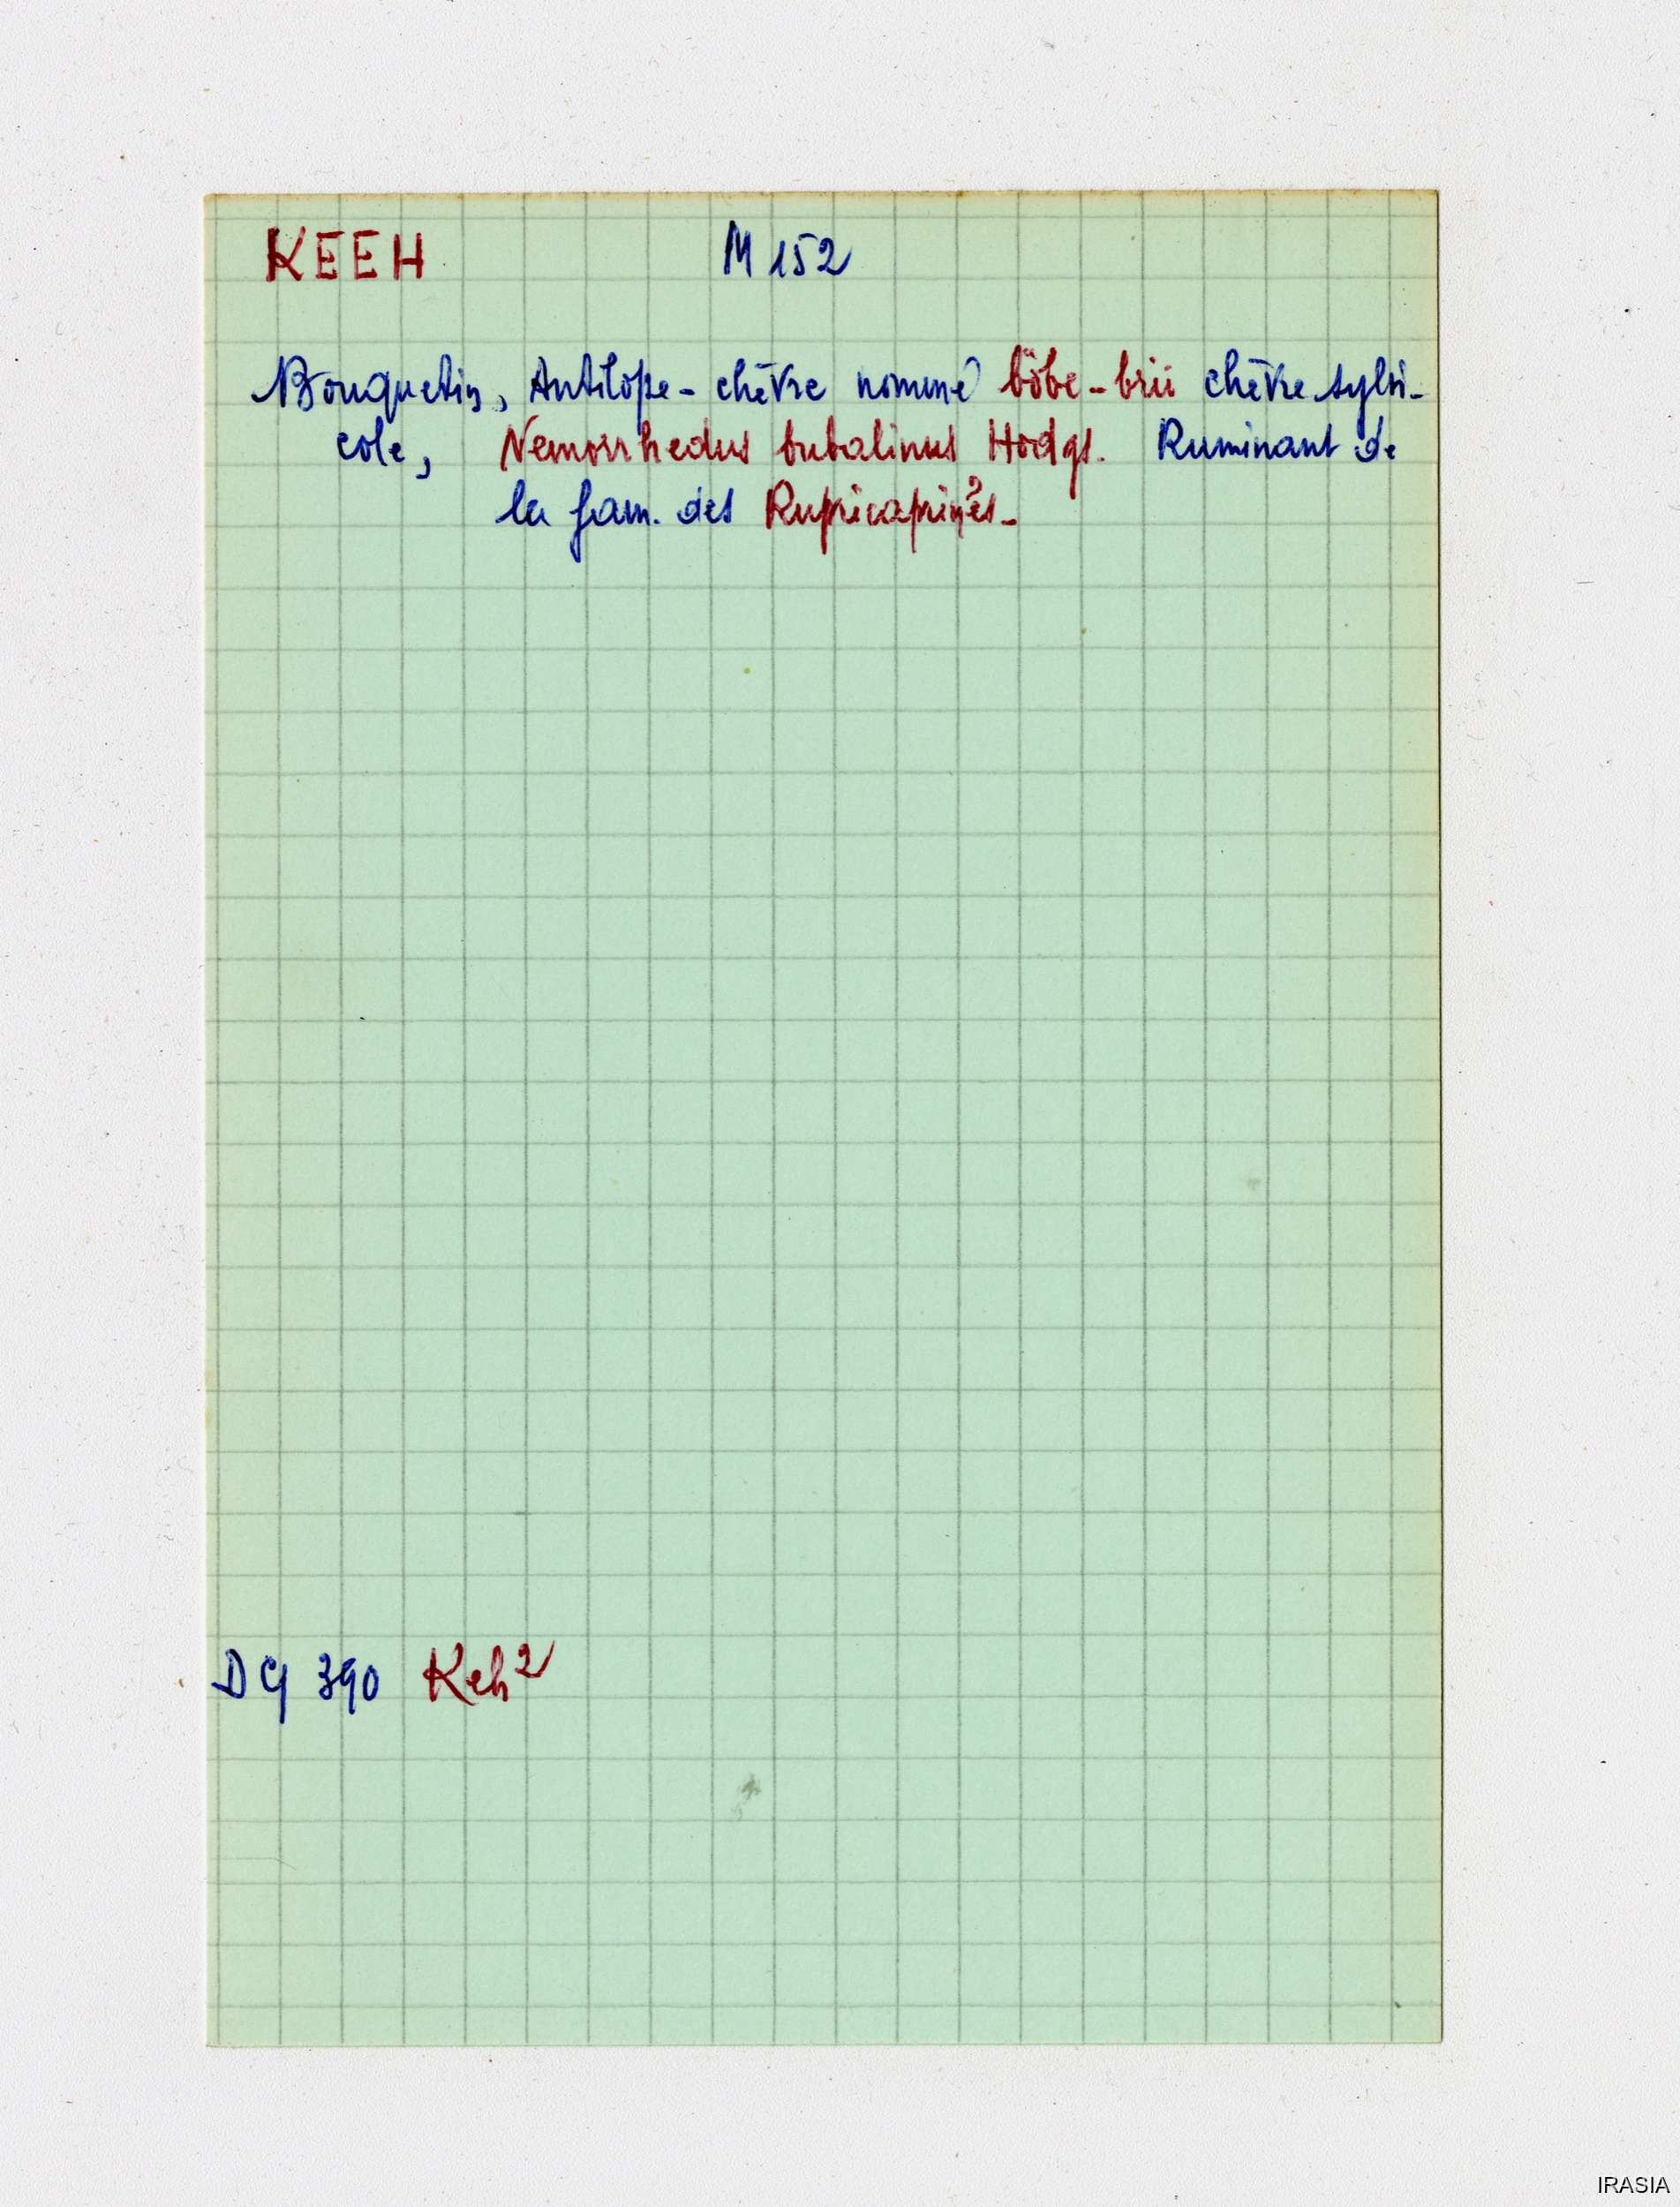 KEEH M 152
Bouquetin, Antilope-chèvre nommé böbe-brii chèvre sylvi-
cole, Nemorrhedus bubalinus Hodgs. Ruminant de
la fam. des Rupicaprinés.
DG 390 Keh²
IRASIA